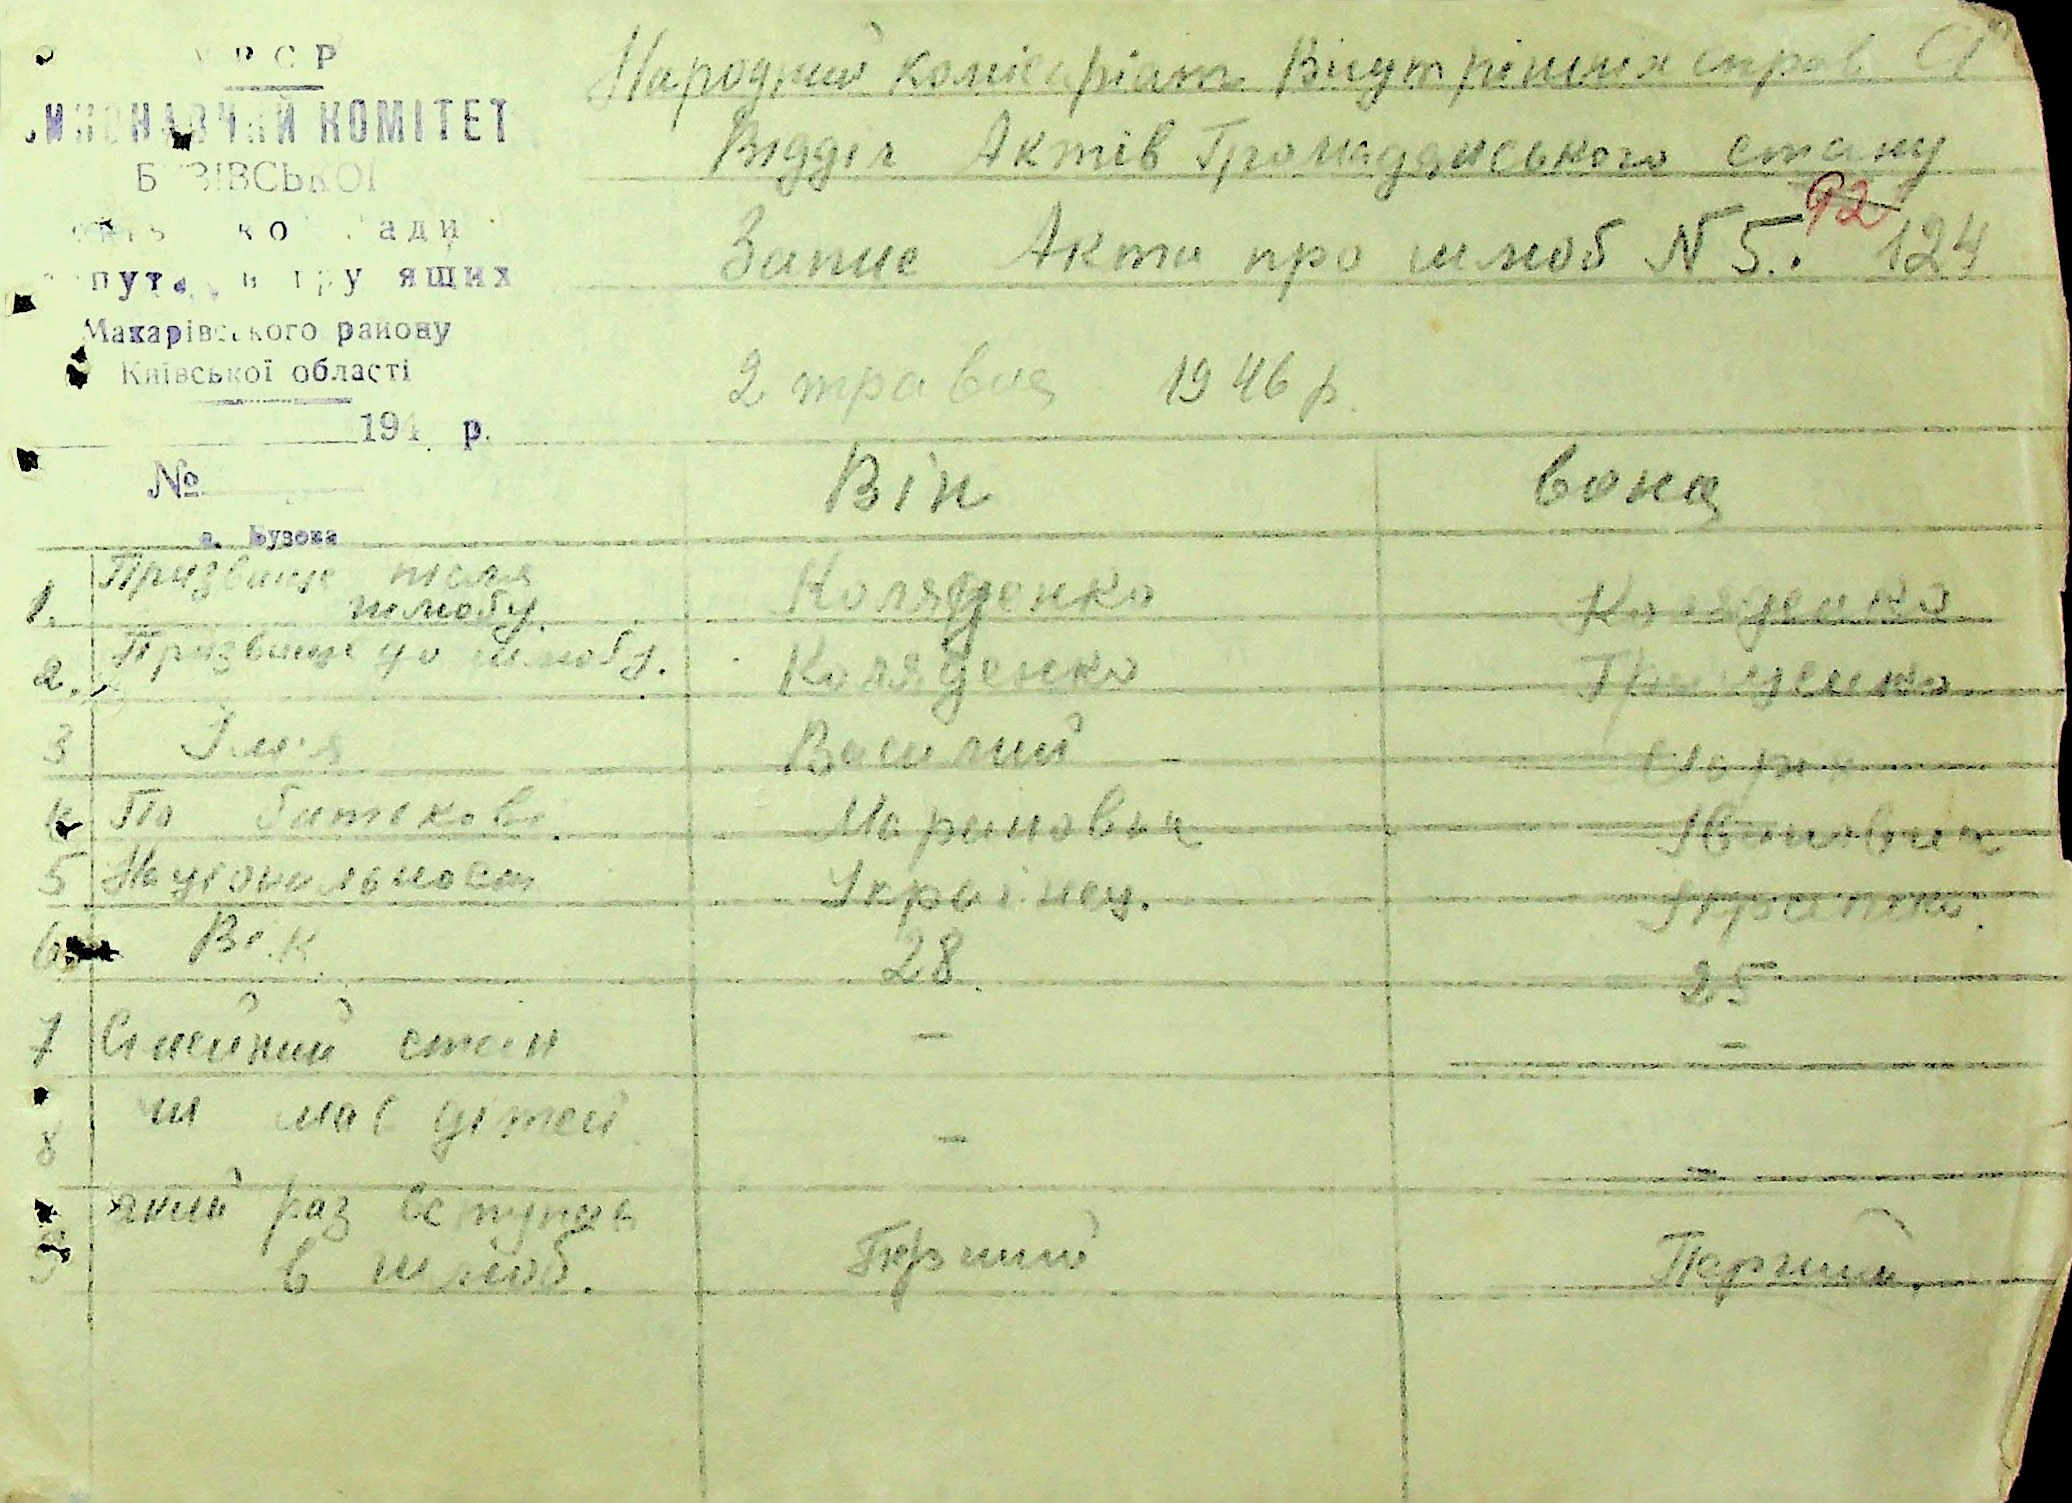 УРСР
ВИКОНАВЧИЙ КОМІТЕТ
БУЗІВСЬКОЇ
ради
трудящих
Макарівського району
Київської області
194 р.
№
с. Бузова
Народний комісаріат Внутрішніх справ
Відділ Актів Громадянського стану
92
Запис Акта про шлюб N 5. 124
2 травня 1946 р.
Він Вона
1. Призвище після шлюбу. Коляденко Коляденко
2. Призвище до шлюбу. Коляденко
3 Імя Василий
4 По батькові Маринович Івановна
5 Національност Українец. Українка.
6 Вік 28 25
7 Сімейний стан - -
8 чи має дітей - -
9 який раз вступив
в шлюб. Перший Перший.